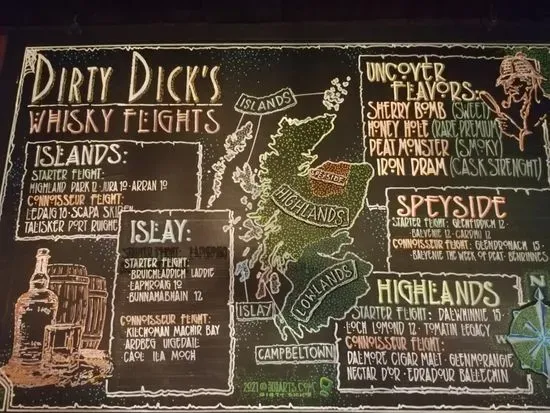 DIRTY DICK'S
WHISKY FLIGHTS
ISLANDS:
STARTER FLIGHT:
HIGHLAND PARK 12 · JURA 10 · ARRAN 10
CONNOISEUR FLIGHT:
LEDAIG 18 · SCAPA SKIREN
TALISKER PORT RUIGHE
ISLAY:
STARTER FLIGHT:
·BRUICHLADDICH LADDIE
·LAPHROAIG 10
·BUNNAHABHAIN 12
CONNOISEUR FLIGHT:
·KILCHOMAN MACHIR BAY
·ARDBEG UIGEDAIL
·CAOL ILA MOCH
ISLANDS
SPEYSIDE
HIGHLANDS
LOWLANDS
ISLAY
CAMPBELTOWN
UNCOVER
FLAVORS:
SHERRY BOMB (SWEET)
HONEY HOLE (RARE, PREMIUM)
PEAT MONSTER (SMOKY)
IRON DRAM (CASK STRENGHT)
SPEYSIDE
STARTER FLIGHT: GLENFIDDICH 12 ·
BALVENIE 12 · CARDHU 12
CONNOISEUR FLIGHT: GLENDRONACH 15 ·
BALVENIE THE WEEK OF PEAT · BENRINNES
HIGHLANDS
STARTER FLIGHT: DALWHINNIE 15 ·
LOCH LOMOND 12 · TOMATIN LEGACY
CONNOISEUR FLIGHT:
DALMORE CIGAR MALT · GLENMORANGIE
NECTAR D'OR · EDRADOUR BALLECHIN
N